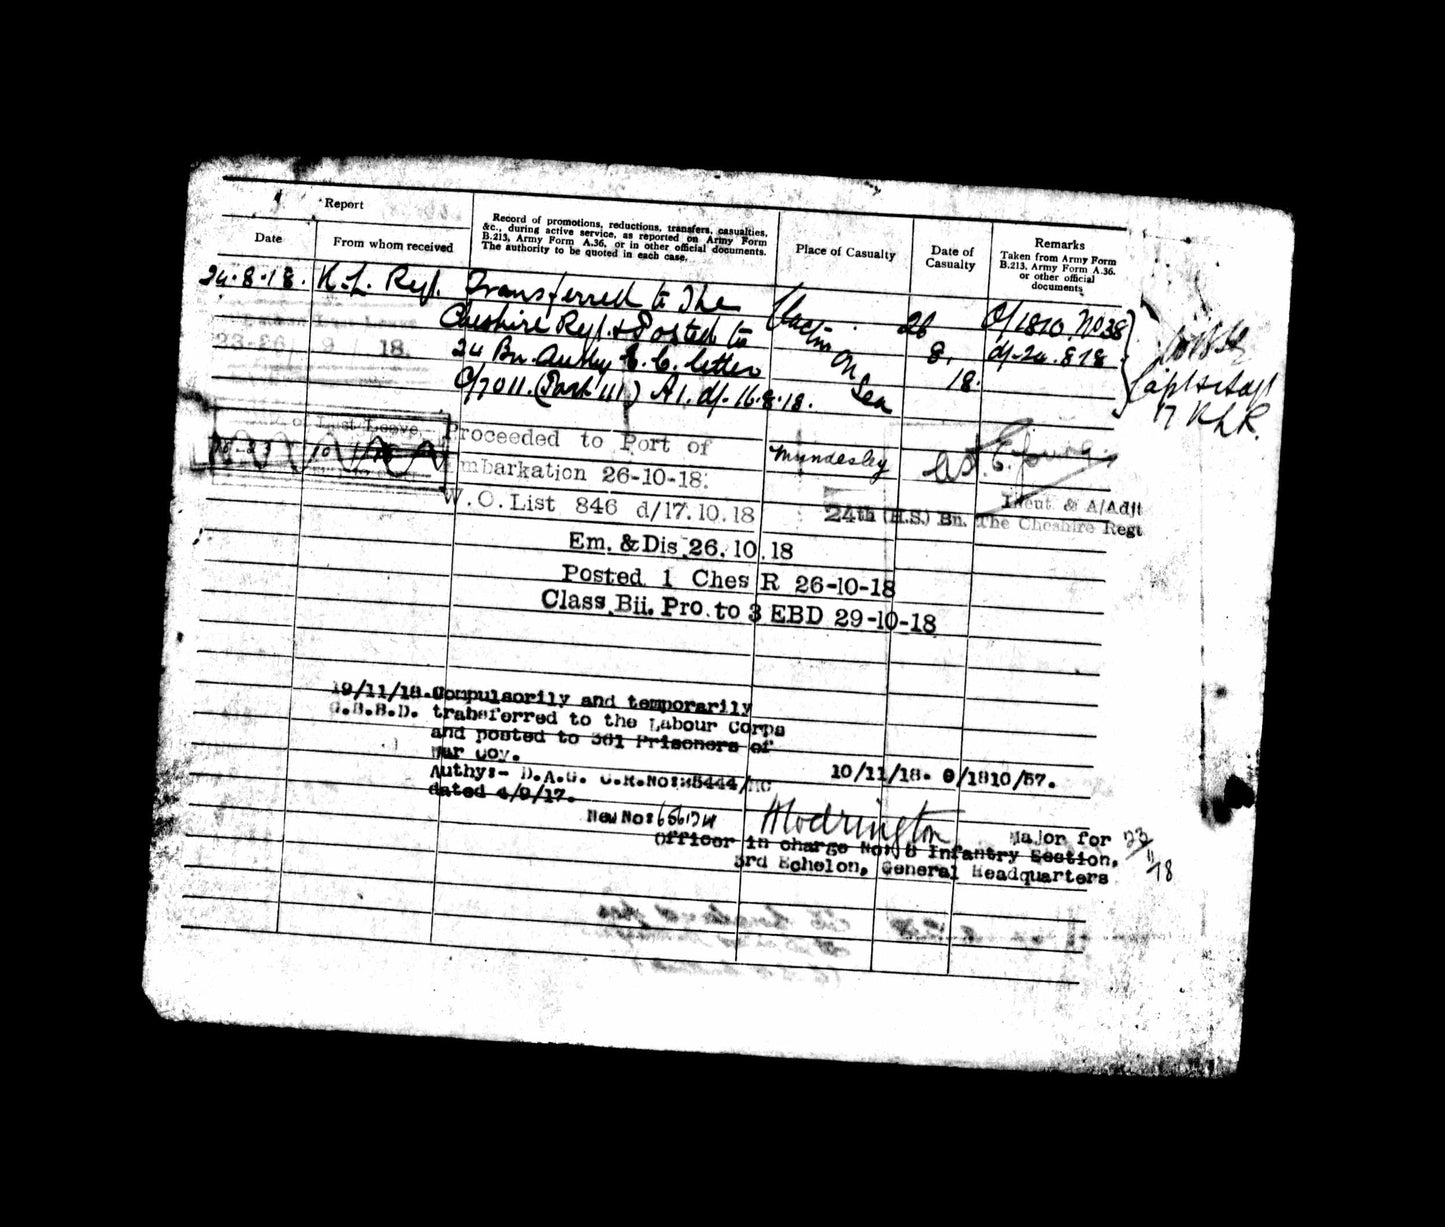 Report
Date
From whom received
Record of promotions, reductions, transfers, casualties,
&c., during active service, as reported on Army Form
B.213, Army Form A.36, or in other official documents.
The authority to be quoted in each case.
Place of Casualty
Date of
Casualty
Remarks
Taken from Army Form
B.213, Army Form A.36,
or other official
documents
24.8.18. K.L. Regt. Transferred to The
Cheshire Regt. & Posted to
24 Bn. Authy E.C. letter
C/7011. (Part III) A1. d/. 16.8.18.
Clacton
On
Sea
26
8.
18.
O/1810. No38
d/-24.8.18
Capt & Adjt
17 K L R.
23-26 9 18.
Last Leave
Proceeded to Port of
Embarkation 26-10-18.
W.O. List 846 d/17.10.18
Mundesley
Lieut. & A/Adjt
24th (H.S.) Bn. The Cheshire Regt
Em. & Dis. 26.10.18
Posted 1 Ches R 26-10-18
Class Bii. Pro. to 3 EBD 29-10-18
19/11/18. Compulsorily and temporarily
G.B.B.D. transferred to the Labour Corps
and posted to 361 Prisoners of
War Coy.
Authy:- D.A.G. C.R.No:25444/
dated 4/9/17.
10/11/18. O/1810/57.
New No:
Major for 23/11/18
Officer in charge No: 8 Infantry Section,
3rd Echelon, General Headquarters